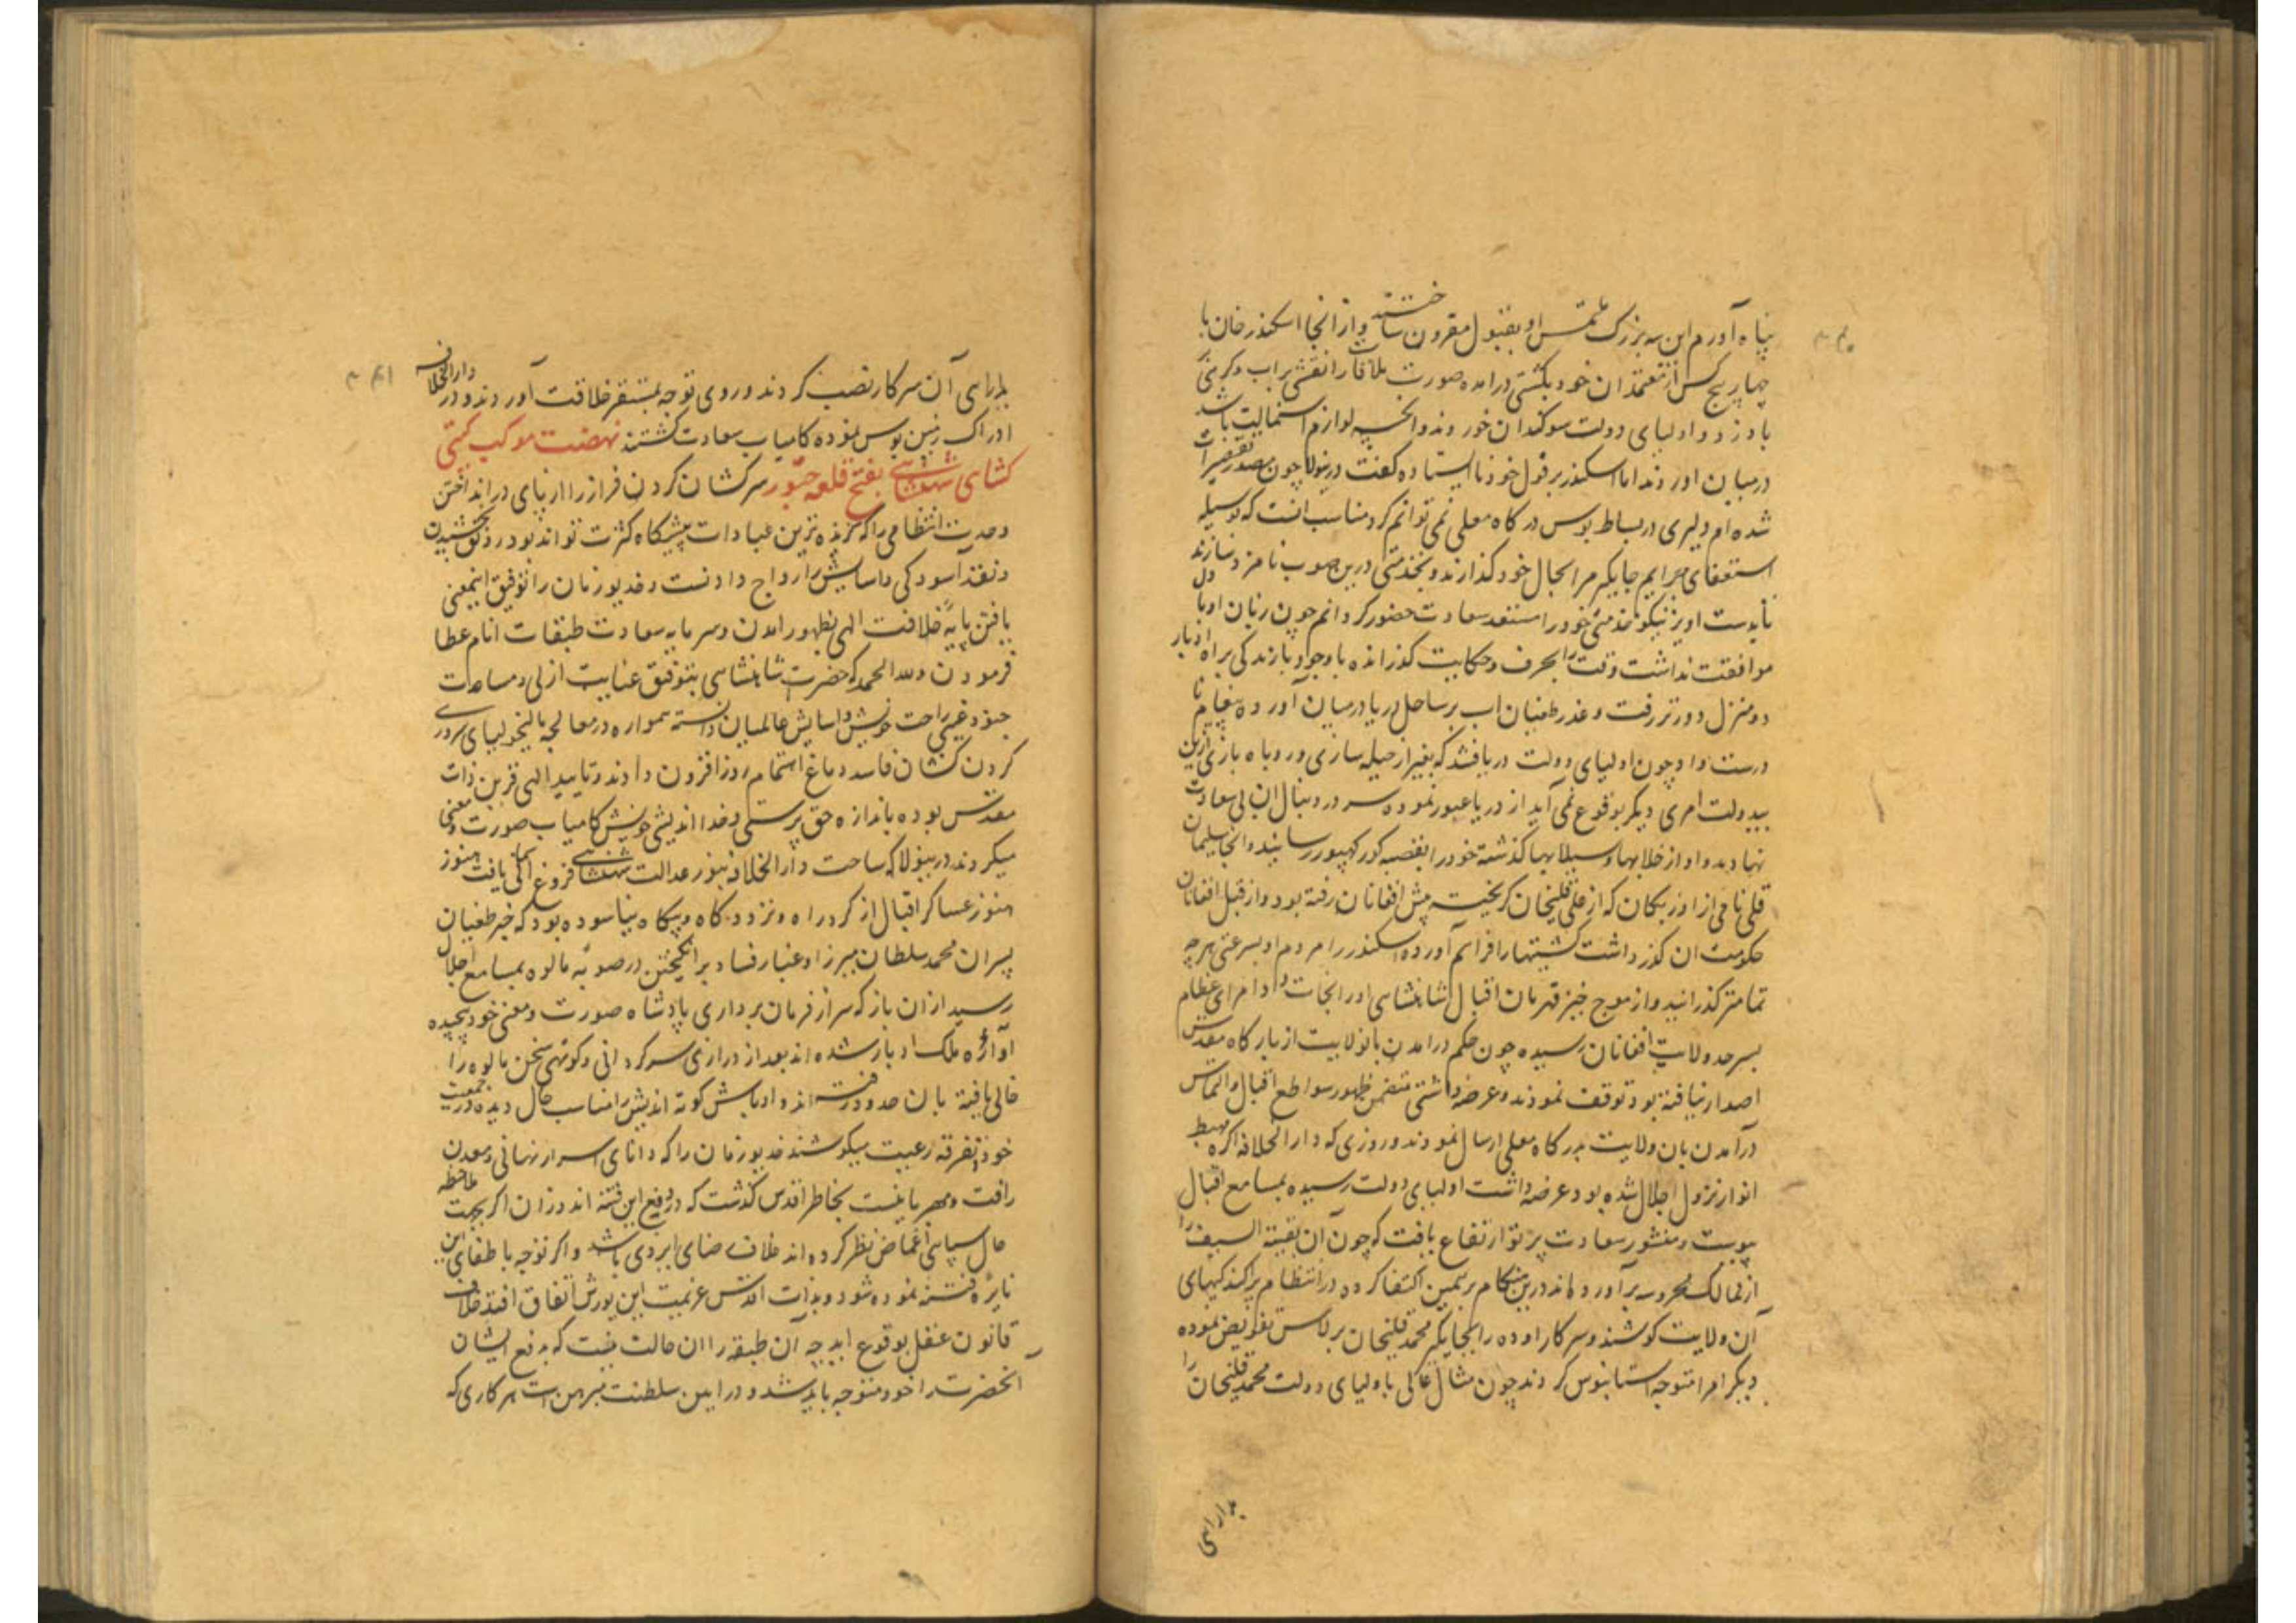 پناه آورم این سه بزرگ ملتمس او بقبول مقرون ساختند و از انجا اسکندر خان با
چهار پنج کس از معتمدان خود بکشتی درامده صورت ملاقات را نقشی براب و گرهی
باد زد و اولیای دولت سوکندان خوردند و انچه لوازم استمالت باشد
درمیان اوردند اما اسکندر بر قول خود نا ایستاده گفت درینولا چون مصدر تقصیرات
شده ام دلیری در بساط بوس درگاه معلی نمی توانم کرد مناسب انست که بوسیله
استعفای جرایم جایگیر مرا بحال خود گذارند و بخدمتی درین صوب نامزد سازند
تا بوسیت اویز نیکو خدمتی خود را مستعد سعادت حضور گردانم چون زبان او با دل
موافقت نداشت وقت را بحرف و حکایت گذرانده با وجود بازندگی براه ادبار
دو منزل دورتر رفت و عذر طغیان اب بر ساحل دریا درمیان آورده پیغام نا
درست داد چون اولیای دولت دریافتند که بغیر از حیله سازی و روباه بازی ازین
بیدولت امری دیگر بوقوع نمی آید از دریا عبور نموده سر در دنبال ان بی سعادت
نهادند و او از خلابها و سیلابها گذشته خود را بقصبه گورکهپور رسانید و انجا سلیمان
قلی نامی از اوزبکان که از علی قلیخان گریخته پیش افغانان رفته بود و از قبل افغانان
حکومت ان گذر داشت کشتیها را فراهم آورده اسکندر را مردم او بسرعتی هرچه
تمامتر گذرانید و از موج خیز قهرمان اقبال شاهنشاهی او را نجات داد امرای عظام
بسرحد ولایت افغانان رسیده چون حکم درامدن بانولایت از بارگاه مقدس
اصدار نیافته بود توقف نمودند و عرضه داشتی متضمن ظهور سواطع اقبال و التماس
درآمدن بان ولایت بدرگاه معلی ارسال نمودند و روزی که دارالخلافه اگره مهبط
انوار نزول اجلال شده بود عرضه داشت اولیای دولت رسیده بمسامع اقبال
پیوست و منشور سعادت پرتو ارتفاع یافت که چون آن بقیة السیف را
از ممالک محروسه برآورده اند درین هنگام برهمین اکتفا کرده در انتظام پراکندگیهای
آن ولایت کوشند و سرکار اوده را بجایگیر محمد قلیخان برلاس تفویض نموده
دیگر امرا متوجه استانبوس گردند چون مثال عالی باولیای دولت محمد قلیخان را
بدارایی
بدارایی آن سرکار نصب کردند و روی توجه بمستقر خلافت آوردند و در دارالخلافه
ادراک زمین بوس نموده کامیاب سعادت گشتند نهضت موکب گیتی
کشای شاهنشاهی بفتح قلعه چتور سرکشان گردن فراز را از پای درانداختن
وحدت انتظامی را که گزیده ترین عبادات پیشگاه کثرت تواند بود رونق بخشیدن
و نقد آسودگی و اسایش را رواج دادنست و خدیو زمان را توفیق اینمعنی
یافتن پایۀ خلافت الهی بظهور امدن و سرمایه سعادت طبقات انام عطا
فرمودن و لله الحمد که حضرت شاهنشاهی بتوفیق عنایت ازلی و مساعدت
راحت خویش و اسایش عالمیان دانسته همواره در معالجه مالیخولیای سروری
گردن کشان فاسد دماغ اهتمام روز افزون دادند و تایید الهی قرین ذات
مقدس بوده باندازه حق پرستی و خدا اندیشی خویش کامیاب صورت و معنی
میگردند درینولا که ساحت دارالخلافه بنور عدالت شاهنشاهی فروغ آگهی یافت هنوز
هنوز عساکر اقبال از گرد راه و تردد گاه و بیگاه نیاسوده بود که خبر طغیان
پسران محمد سلطان میرزا و غبار فساد برانگیختن در صوبه مالوه بمسامع اجلال
رسید از ان باز که سر از فرمان برداری پادشاه صورت و معنی خود پیچیده
آوارۀ ملک ادبار شده اند بعد از درازی سرگردانی و کوتهی سخن مالوه را
خالی یافته بان حدود رفته اند و اوباش کوته اندیش را مناسب حال دیده در جمعیت
خود و تفرقه رعیت میکوشند خدیو زمان را که دانای اسرار نهانی و معدن
رافت و مهربانیست بخاطر اقدس گذشت که در دفع این فتنه اندوزان اگر بجهت ملاحظه
حال سپاهی اغماض نظر کرده اند خلاف رضای ایزدی باشد و اگر توجه باطفای این
نایرۀ فتنه نموده شود و بذات اقدس عزیمت این یورش اتفاق افتد خلاف
قانون عقل بوقوع اید چه آن طبقه را ان حالت نیست که بدفع ایشان
آنحضرت را خود متوجه باید شد و در ایین سلطنت مبرهن است هر کاری که